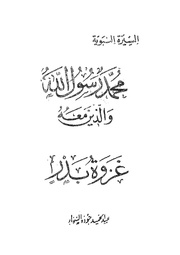 السيرة النبوية
محمد رسول الله
والذين معه
غزوة بدر
عبد الحميد جودة السحار